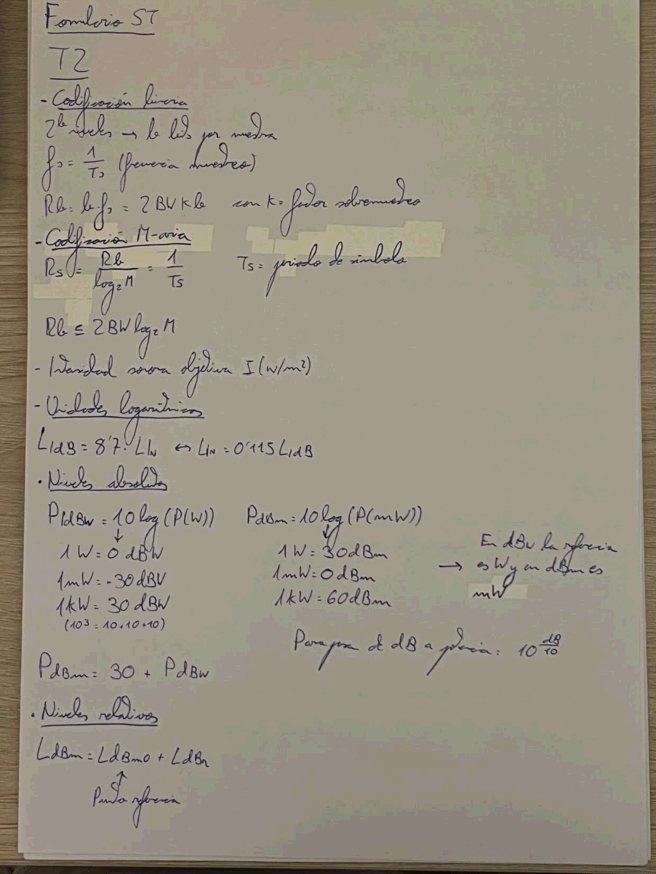 Formulario ST
T2
- Codificación binaria
2^b niveles → b bits por muestra
fs = 1/Ts (frecuencia muestreo)
Rb = b·fs = 2BWKb con K = factor sobremuestreo
- Codificación M-aria
Rs = Rb/log₂M = 1/Ts Ts = periodo de símbolo
Rb ≤ 2BWlog₂M
- Intensidad sonora objetiva I (W/m²)
- Unidades logarítmicas
L|dB = 8'7·L|N ↔ L|N = 0'115 L|dB
· Niveles absolutos
P|dBW = 10 log (P(W)) PdBm = 10 log (P(mW))
↓ ↓
1 W = 0 dBW 1 W = 30 dBm
1mW = -30 dBW 1mW = 0 dBm
1kW = 30 dBW 1kW = 60 dBm
(10³ = 10+10+10)
→ En dBW la referencia
es W y en dBm es
mW
Para pasar de dB a potencia: 10^(dB/10)
PdBm = 30 + PdBW
· Niveles relativos
LdBm = LdBm0 + LdBr
↑
Punto referencia